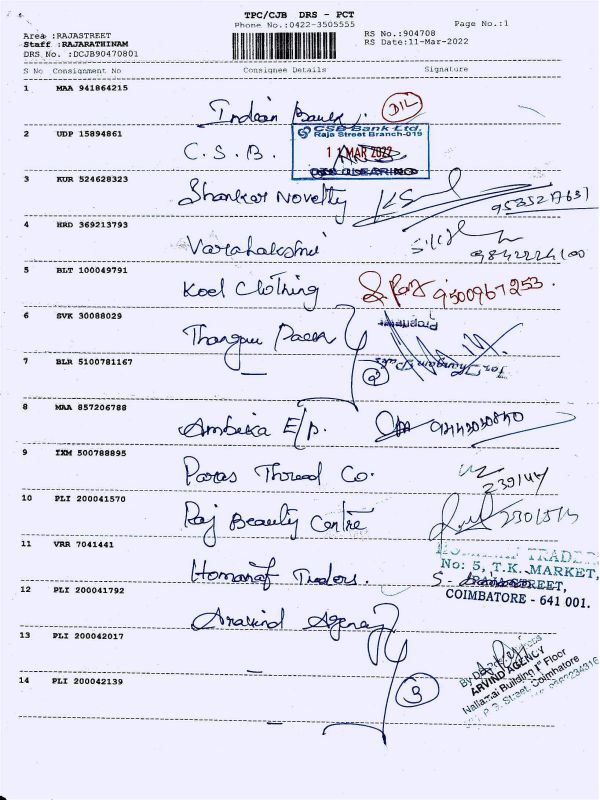 TPC/CJB DRS - PCT
Phone No.:0422-3505555 Page No.:1
Area :RAJASTREET RS No.:904708
Staff :RAJARATHINAM RS Date:11-Mar-2022
DRS No. :DCJB90470801
S No Consignment No Consignee Details Signature
1 MAA 941864215
Indian Bank. DIL
2 UDP 15894861
C.S.B. CSB Bank Ltd.
Raja Street Branch-019
11 MAR 2022
3 KUR 524628323
Shankar Novelty
4 HRD 369213793
Varahalakshmi 9842224100
5 BLT 100049791
Kool Clothing 9500967253.
6 SVK 30088029
Proprietor
7 BLR 5100781167
For Thangam
2
8 MAA 857206788
Ambika E/p.
9 IXM 500788895
Paras Thread Co. 239144
10 PLI 200041570
Raj Beauty Centre
11 VRR 7041441
TRADERS
Homanaf Traders. No: 5, T.K. MARKET,
STREET,
12 PLI 200041792 COIMBATORE - 641 001.
Aravind Agency
13 PLI 200042017
ARVIND AGENCY
Building 1st Floor
14 PLI 200042139
3
Street, Coimbatore